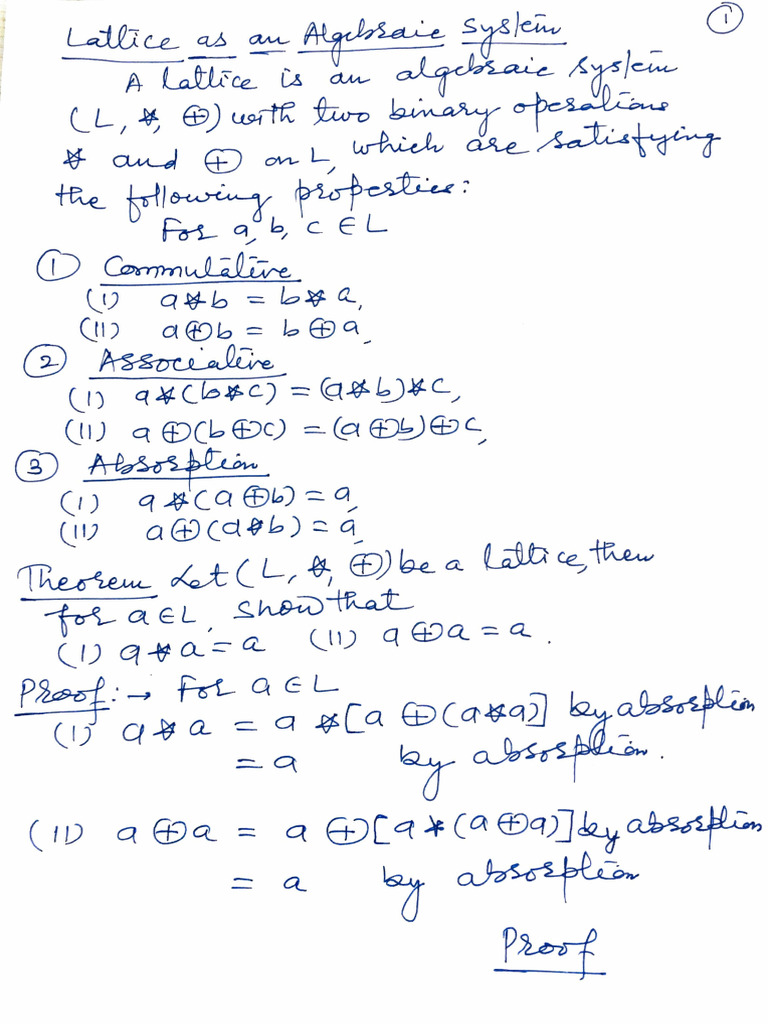 ①
Lattice as an Algebraic System
A lattice is an algebraic system
(L, *, ⊕) with two binary operations
* and ⊕ on L, which are satisfying
the following properties:
For a, b, c ∈ L
① Commutative
(i) a * b = b * a,
(ii) a ⊕ b = b ⊕ a,
② Associative
(i) a * (b * c) = (a * b) * c,
(ii) a ⊕ (b ⊕ c) = (a ⊕ b) ⊕ c,
③ Absorption
(i) a * (a ⊕ b) = a,
(ii) a ⊕ (a * b) = a,
Theorem Let (L, *, ⊕) be a lattice, then
for a ∈ L, show that
(i) a * a = a (ii) a ⊕ a = a.
Proof :→ For a ∈ L
(i) a * a = a * [a ⊕ (a * a)] by absorption
= a by absorption.
(ii) a ⊕ a = a ⊕ [a * (a ⊕ a)] by absorption
= a by absorption
Proof